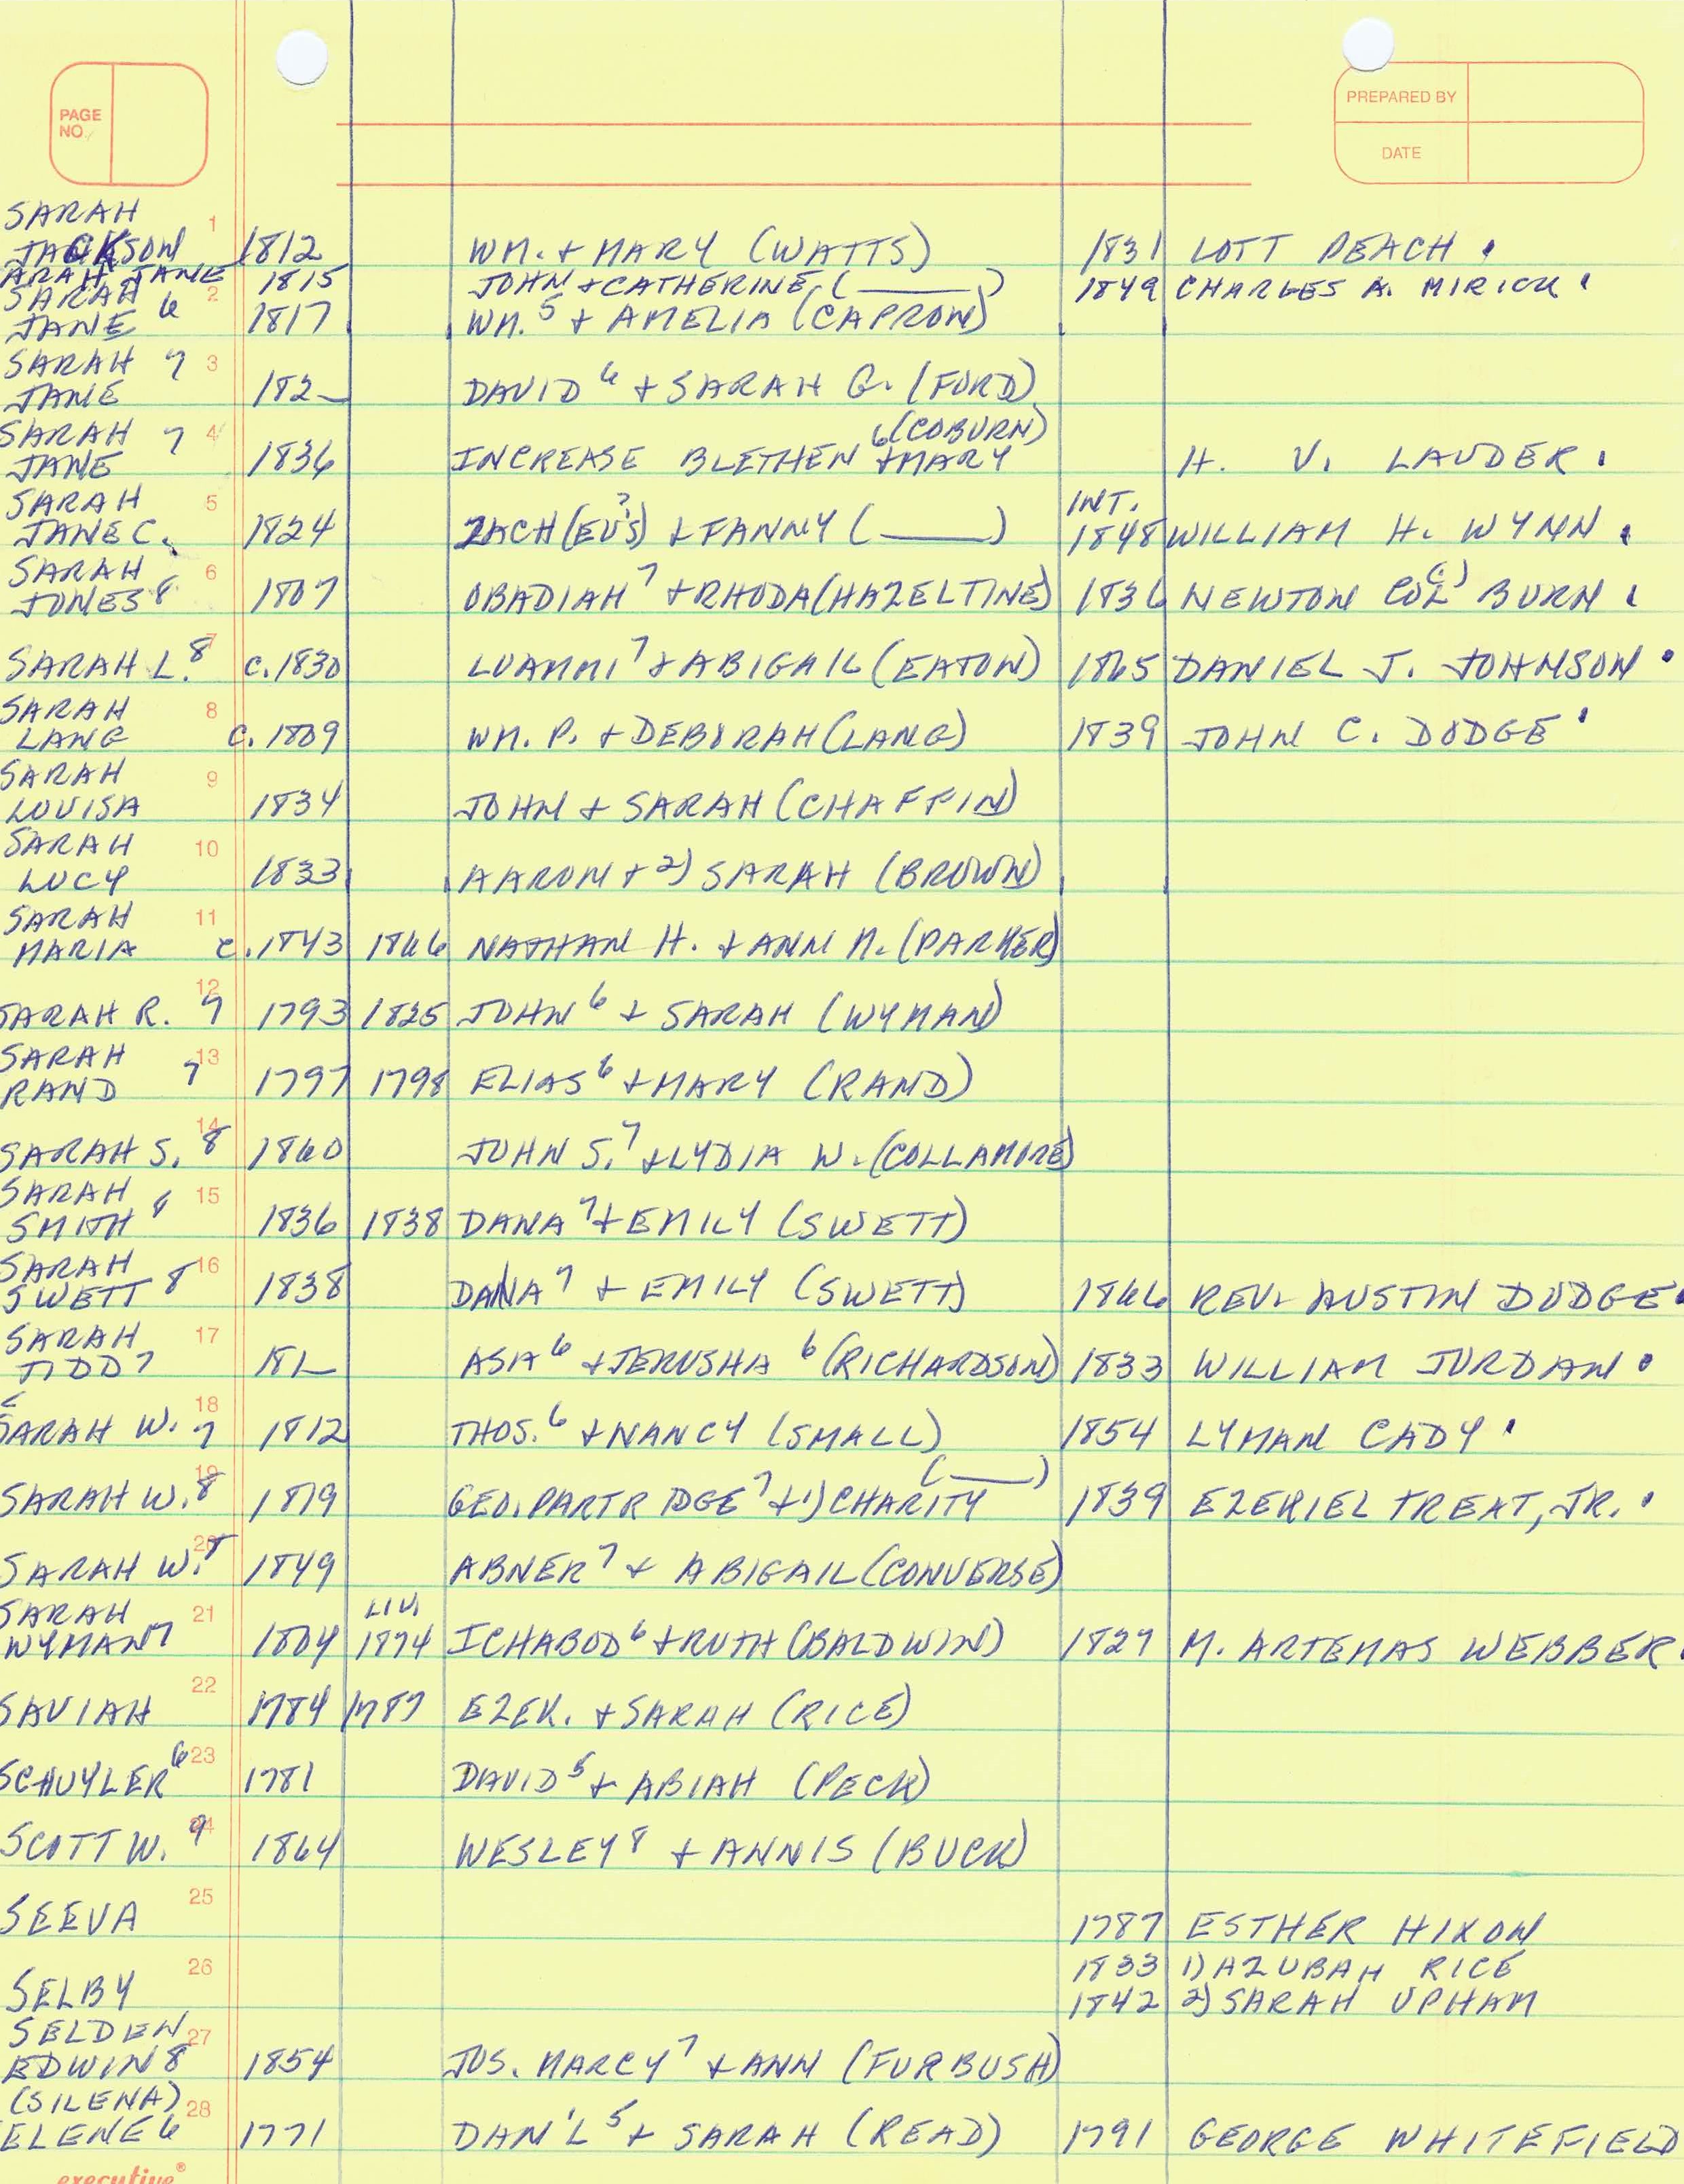 PAGE NO.
PREPARED BY
DATE
SARAH 1
JACKSON 1812 WM. + MARY (WATTS) 1831 LOTT PEACH .
ARAH JANE 1815 JOHN + CATHERINE (_____) 1849 CHARLES A. MIRICK .
SARAH 2
JANE 6 1817 WM.5 + AMELIA (CAPRON)
SARAH 7 3
JANE 182_ DAVID 6 + SARAH G. (FORD)
SARAH 7 4 (COBURN)
JANE 1836 INCREASE BLETHEN 6 + MARY H. V. LAUDER .
SARAH 5 ? INT.
JANE C. 1824 ZACH (EU'S) + FANNY (_____) 1848 WILLIAM H. WYNN .
SARAH 6
JONES 8 1807 OBADIAH 7 + RHODA (HAZELTINE) 1836 NEWTON COL(C) BURN .
7
SARAH L. 8 c. 1830 LUAMMI 7 + ABIGAIL (EATON) 1865 DANIEL J. JOHNSON .
SARAH 8
LANG c. 1809 WM. P. + DEBORAH (LANG) 1839 JOHN C. DODGE .
SARAH 9
LOUISA 1834 JOHN + SARAH (CHAFFIN)
SARAH 10
LUCY 1833 AARON + 2) SARAH (BROWN)
SARAH 11
MARIA c. 1843 1866 NATHAN H. + ANN M. (PARKER)
12
SARAH R. 7 1793 1825 JOHN 6 + SARAH (WYMAN)
SARAH 13
RAND 7 1797 1798 ELIAS 6 + MARY (RAND)
14
SARAH S. 8 1860 JOHN S. 7 + LYDIA W. (COLLAMORE)
SARAH 15
SMITH 8 1836 1838 DANA 7 + EMILY (SWETT)
SARAH 16
SWETT 8 1838 DANA 7 + EMILY (SWETT) 1866 REV. AUSTIN DODGE .
SARAH 17
TIDD 7 181_ ASIA 6 + JERUSHA 6 (RICHARDSON) 1833 WILLIAM JORDAN .
18
SARAH W. 7 1812 THOS. 6 + NANCY (SMALL) 1854 LYMAN CADY .
19 (_____)
SARAH W. 8 1819 GEO. PARTRIDGE 7 + 1) CHARITY 1839 EZEKIEL TREAT, JR. .
20
SARAH W. 8 1849 ABNER 7 + ABIGAIL (CONVERSE)
SARAH 21 LIV.
WYMAN 7 1804 1874 ICHABOD 6 + RUTH (BALDWIN) 1827 M. ARTEMAS WEBBER .
22
SAVIAH 1784 1787 EZEK. + SARAH (RICE)
23
SCHUYLER 6 1781 DAVID 5 + ABIAH (PECK)
24
SCOTT W. 9 1864 WESLEY 8 + ANNIS (BUCK)
25
SEEVA 1787 ESTHER HIXON
26 1833 1) AZUBAH RICE
SELBY 1842 2) SARAH UPHAM
SELDEN 27
EDWIN 8 1854 JOS. MARCY 7 + ANN (FURBUSH)
(SILENA) 28
ELENE 6 1771 DAN'L 5 + SARAH (READ) 1791 GEORGE WHITEFIELD
executive®